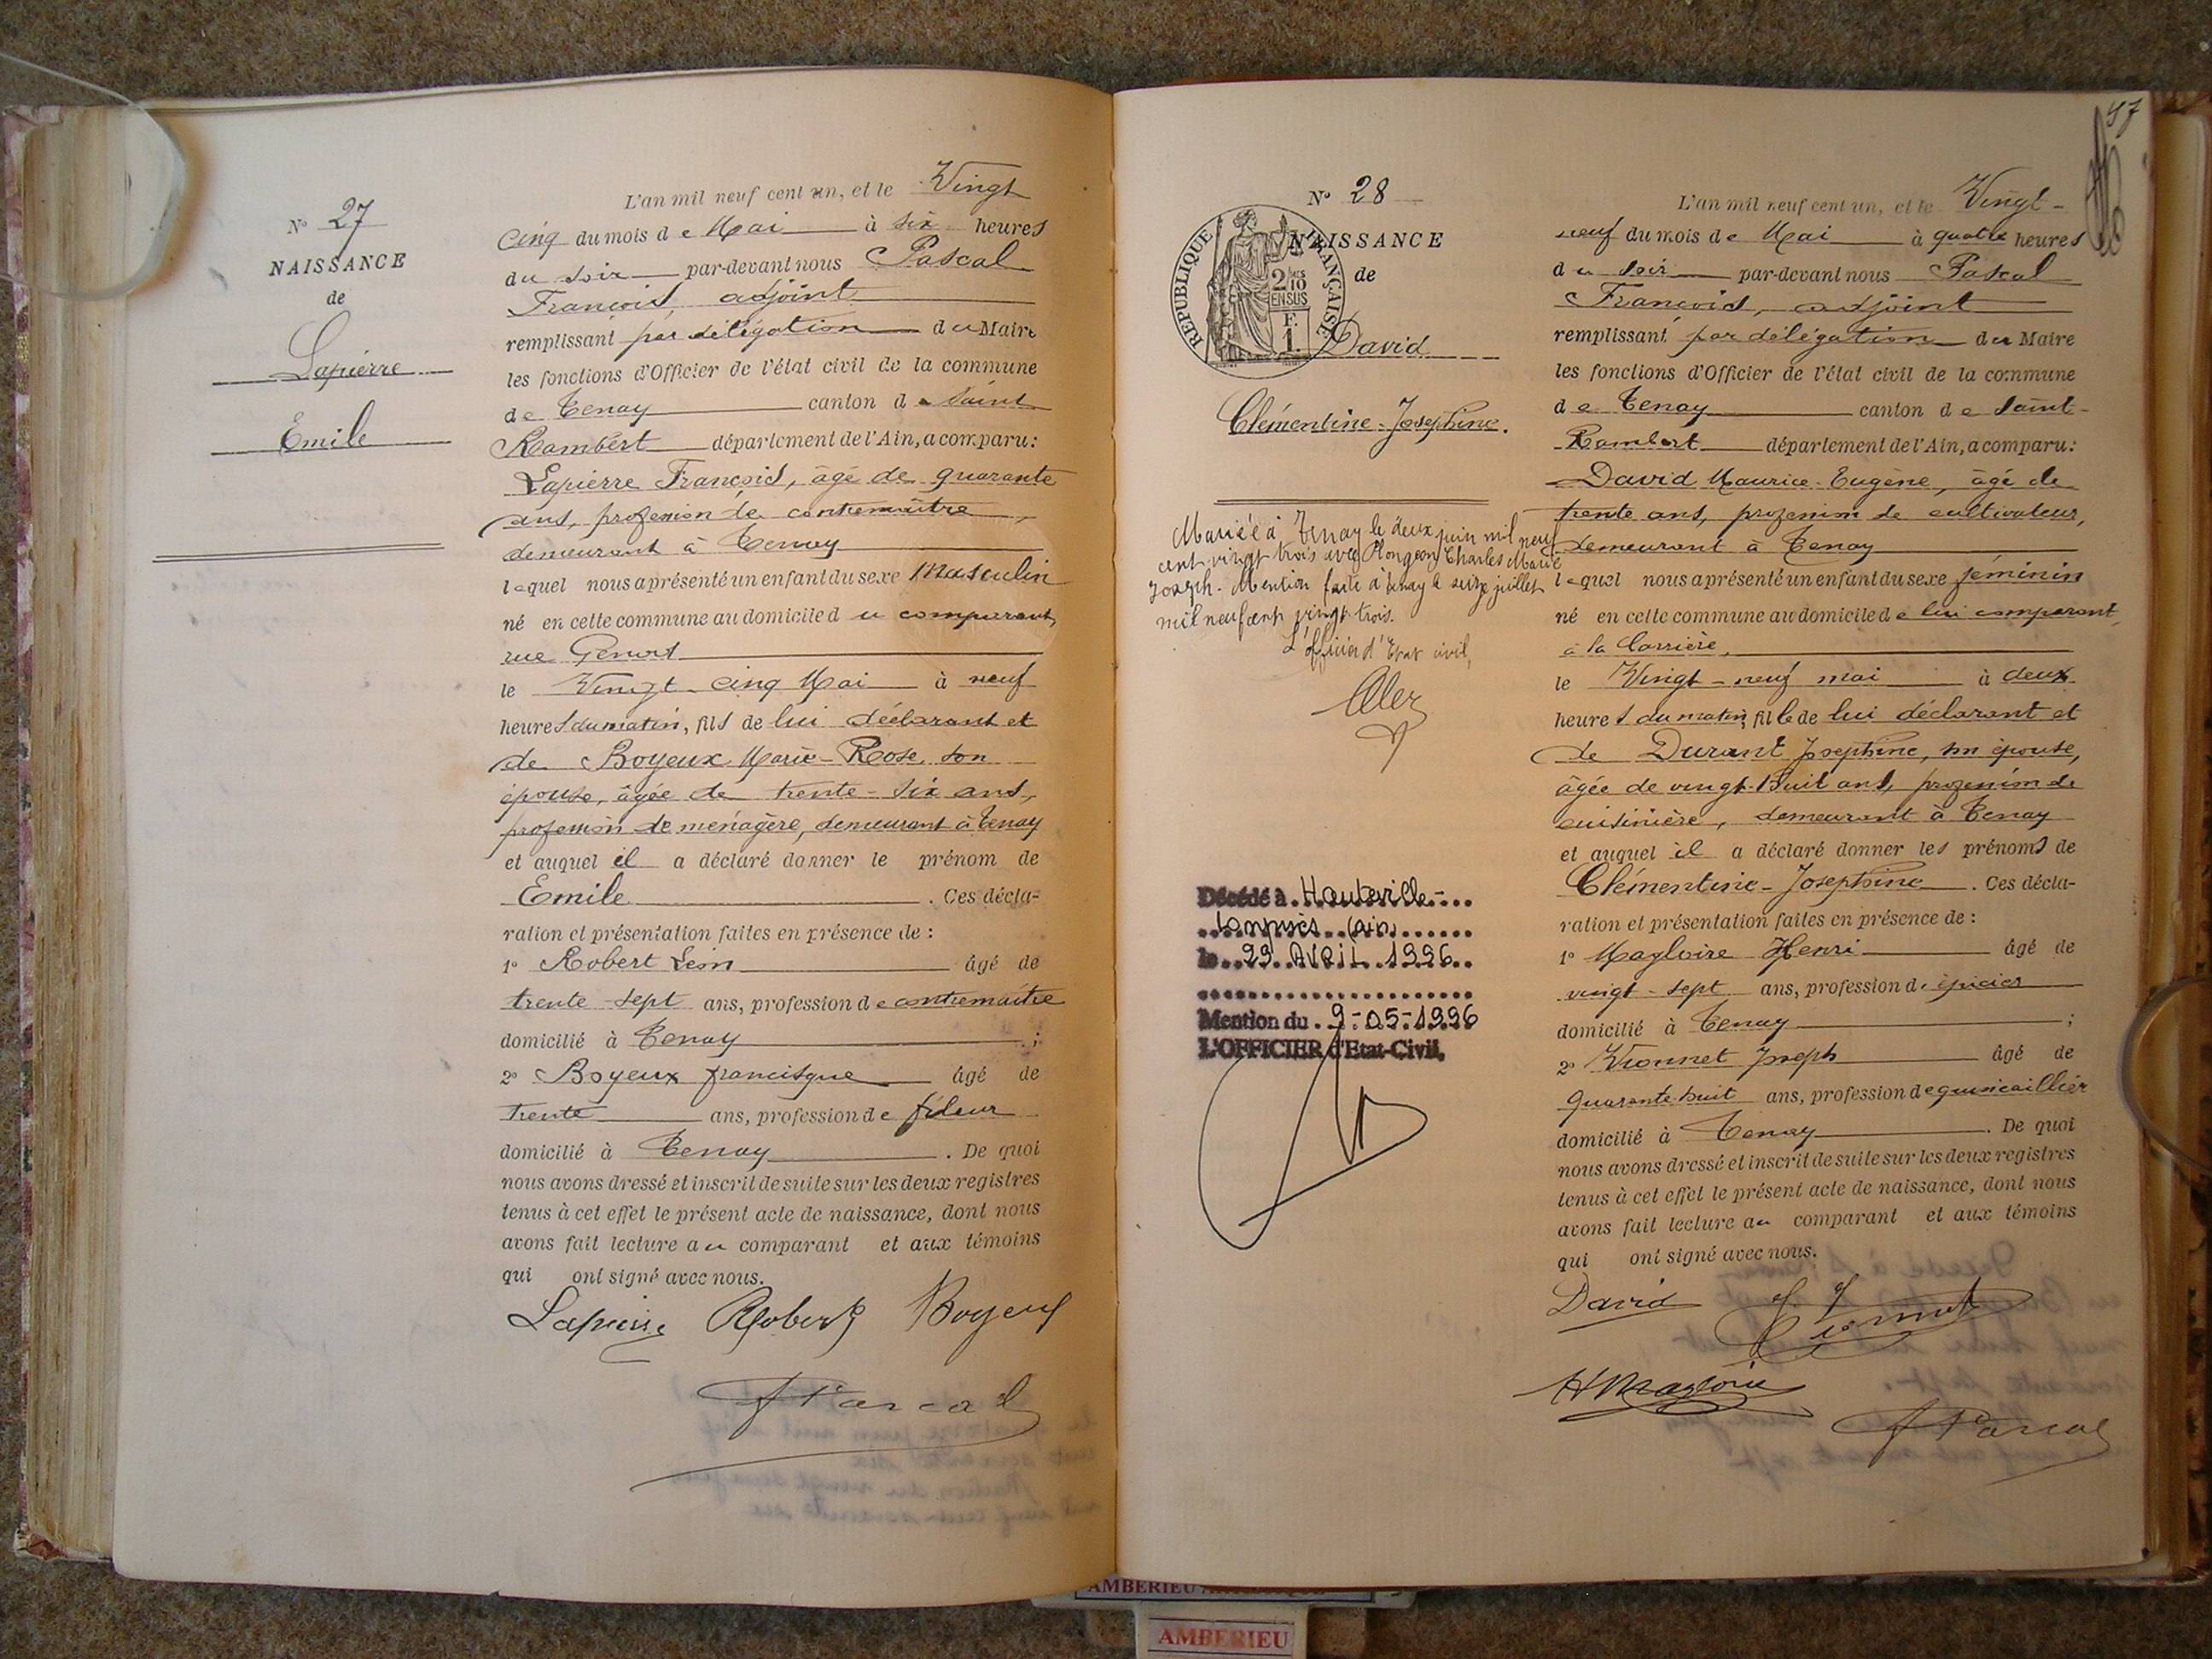 N° 27
NAISSANCE
de
Lapierre
Emile
L'an mil neuf cent un, et le Vingt
cinq du mois de Mai à six heures
du soir par-devant nous Pascal
François, adjoint
remplissant par délégation du Maire
les fonctions d'Officier de l'état civil de la commune
de Tenay canton de Saint
Rambert département de l'Ain, a comparu:
Lapierre François, âgé de quarante
ans, profession de contremaître,
demeurant à Tenay
lequel nous a présenté un enfant du sexe Masculin
né en cette commune au domicile du comparant,
rue
le Vingt-cinq Mai à neuf
heures du matin, fils de lui déclarant et
de Boyeux Marie-Rose, son
épouse, âgée de trente-six ans,
profession de ménagère, demeurant à Tenay
et auquel il a déclaré donner le prénom de
Emile. Ces décla-
ration et présentation faites en présence de :
1° Robert Léon âgé de
trente-sept ans, profession de contremaître
domicilié à Tenay ;
2° Boyeux francisque âgé de
trente ans, profession de fileur
domicilié à Tenay. De quoi
nous avons dressé et inscrit de suite sur les deux registres
tenus à cet effet le présent acte de naissance, dont nous
avons fait lecture au comparant et aux témoins
qui ont signé avec nous.
Lapierre Robert Boyeux
F Pascal
57
N° 28
NAISSANCE
de
RÉPUBLIQUE FRANÇAISE
2/10 EN SUS
F.
1.
David
Clémentine-Josephine.
Mariée à Tenay le deux juin mil neuf
cent vingt trois avec Plongeon Charles Marie
Joseph. Mention faite à Tenay le seize juillet
mil neuf cent vingt-trois.
L'officier d'Etat civil,
Décédé à Hauteville-
Lompnès (Ain)
le 29 AVRIL 1996
Mention du 9-05-1996
L'OFFICIER d'Etat-Civil,
L'an mil neuf cent un, et le Vingt-
neuf du mois de Mai à quatre heures
du soir par-devant nous Pascal
François, adjoint
remplissant par délégation du Maire
les fonctions d'Officier de l'état civil de la commune
de Tenay canton de Saint-
Rambert département de l'Ain, a comparu:
David Maurice-Eugène, âgé de
trente ans, profession de cultivateur,
demeurant à Tenay
lequel nous a présenté un enfant du sexe féminin
né en cette commune au domicile de lui comparant,
à la Carrière,
le Vingt-neuf mai à deux
heures du matin, fille de lui déclarant et
de Durant Josephine, son épouse,
âgée de vingt-huit ans, profession de
cuisinière, demeurant à Tenay
et auquel il a déclaré donner les prénoms de
Clémentine-Josephine. Ces décla-
ration et présentation faites en présence de :
1° Magloire Henri âgé de
vingt-sept ans, profession d'épicier
domicilié à Tenay ;
2° Vionnet Joseph âgé de
quarante-huit ans, profession de quincaillier
domicilié à Tenay. De quoi
nous avons dressé et inscrit de suite sur les deux registres
tenus à cet effet le présent acte de naissance, dont nous
avons fait lecture au comparant et aux témoins
qui ont signé avec nous.
David J. Vionnet
H Magloire
F Pascal
AMBERIEU
AMBERIEU